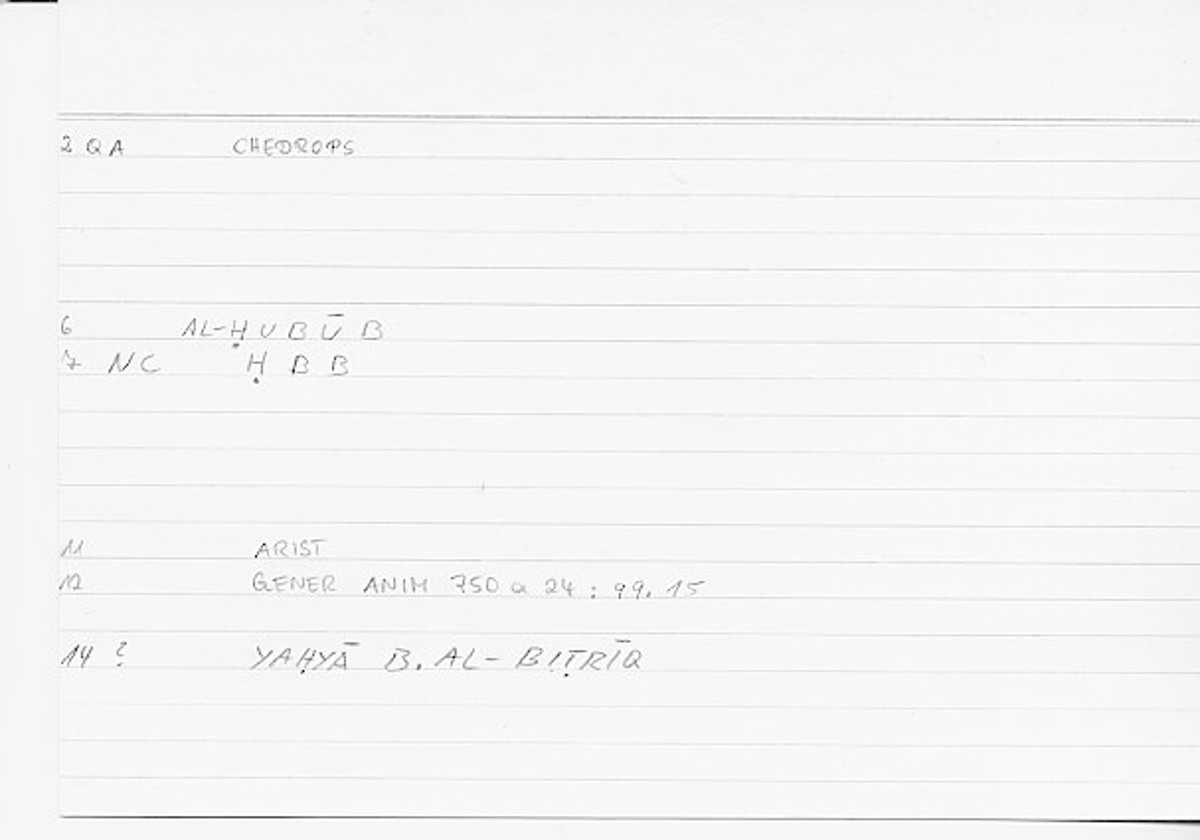 2 QA CHEDROPS
6 AL-ḤUBŪB
7 NC ḤBB
11 ARIST
12 GENER ANIM 750 a 24 : 99. 15
14 ? YAḤYĀ B. AL-BIṬRĪQ